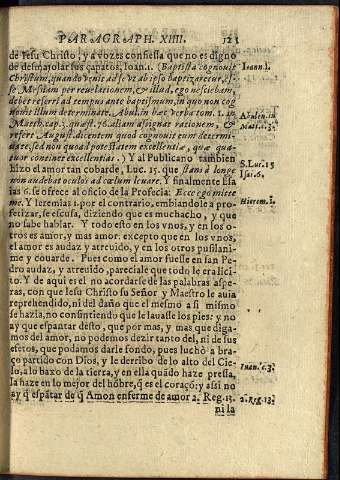 PARAGRAPH. XIIII. 125
de Iesu Christo, y a vozes confiessa que no es digno
de desmajolar sus çapatos, Ioan. 1. (Baptista cognouit
Christum, quando venit ad se vt ab ipso baptizaretur, es-
se Messiam per reuelationem, & illud, ego nesciebam,
debet referri ad tempus ante baptismum, in quo non cog
nouit illum determinate. Abul. in hæc verba tom. 1. in
Matth. cap. 3. quæst. 76. aliam assignat rationem, &
refert August. dicentem quod cognouit eum determi-
nate, sed non quoad potestatem excellentiæ, quæ qua-
tuor continet excellentias.) Y al Publicano tambien
hizo el amor tan cobarde, Luc. 15. que stans à longe
non audebat oculos ad cœlum leuare. Y finalmente Esa
ias 6. se ofrece al oficio de la Profecia: Ecce ego mitte
me. Y Ieremias 1. por el contrario, embiandole a pro-
fetizar, se escusa, diziendo que es muchacho, y que
no sabe hablar. Y todo esto en los vnos, y en los o-
tros es amor, y mas amor. excepto que en los vnos,
el amor es audaz y atreuido, y en los otros pusilani-
me y couarde. Pues como el amor fuesse en san Pe-
dro audaz, y atreuido, pareciale que todo le era lici-
to. Y de aqui es el no acordarse de las palabras aspe-
ras, con que Iesu Christo su Señor y Maestro le auia
reprehendido, ni del daño que el mesmo a si mismo
se hazia, no consintiendo que le lauasse los pies: y no
ay que espantar desto, que por mas, y mas que diga-
mos del amor, no podemos dezir tanto del, ni de sus
efetos, que podamos darle fondo, pues luchò a bra-
ço partido con Dios, y le derribo de lo alto del Cie-
lo, a lo baxo de la tierra, y en ella quãdo haze pressa,
la haze en lo mejor del hõbre, q̃ es el coraçõ: y assi no
ay q̃ espãtar de q̃ Amon enferme de amor 2. Reg. 13.
ni la
Ioann. 1.
Abulen. in
Mat. c. 3.
S. Luc. 15
Isai. 6.
Hierem. 1.
Ioan. c. 3.
2. Reg. 13.